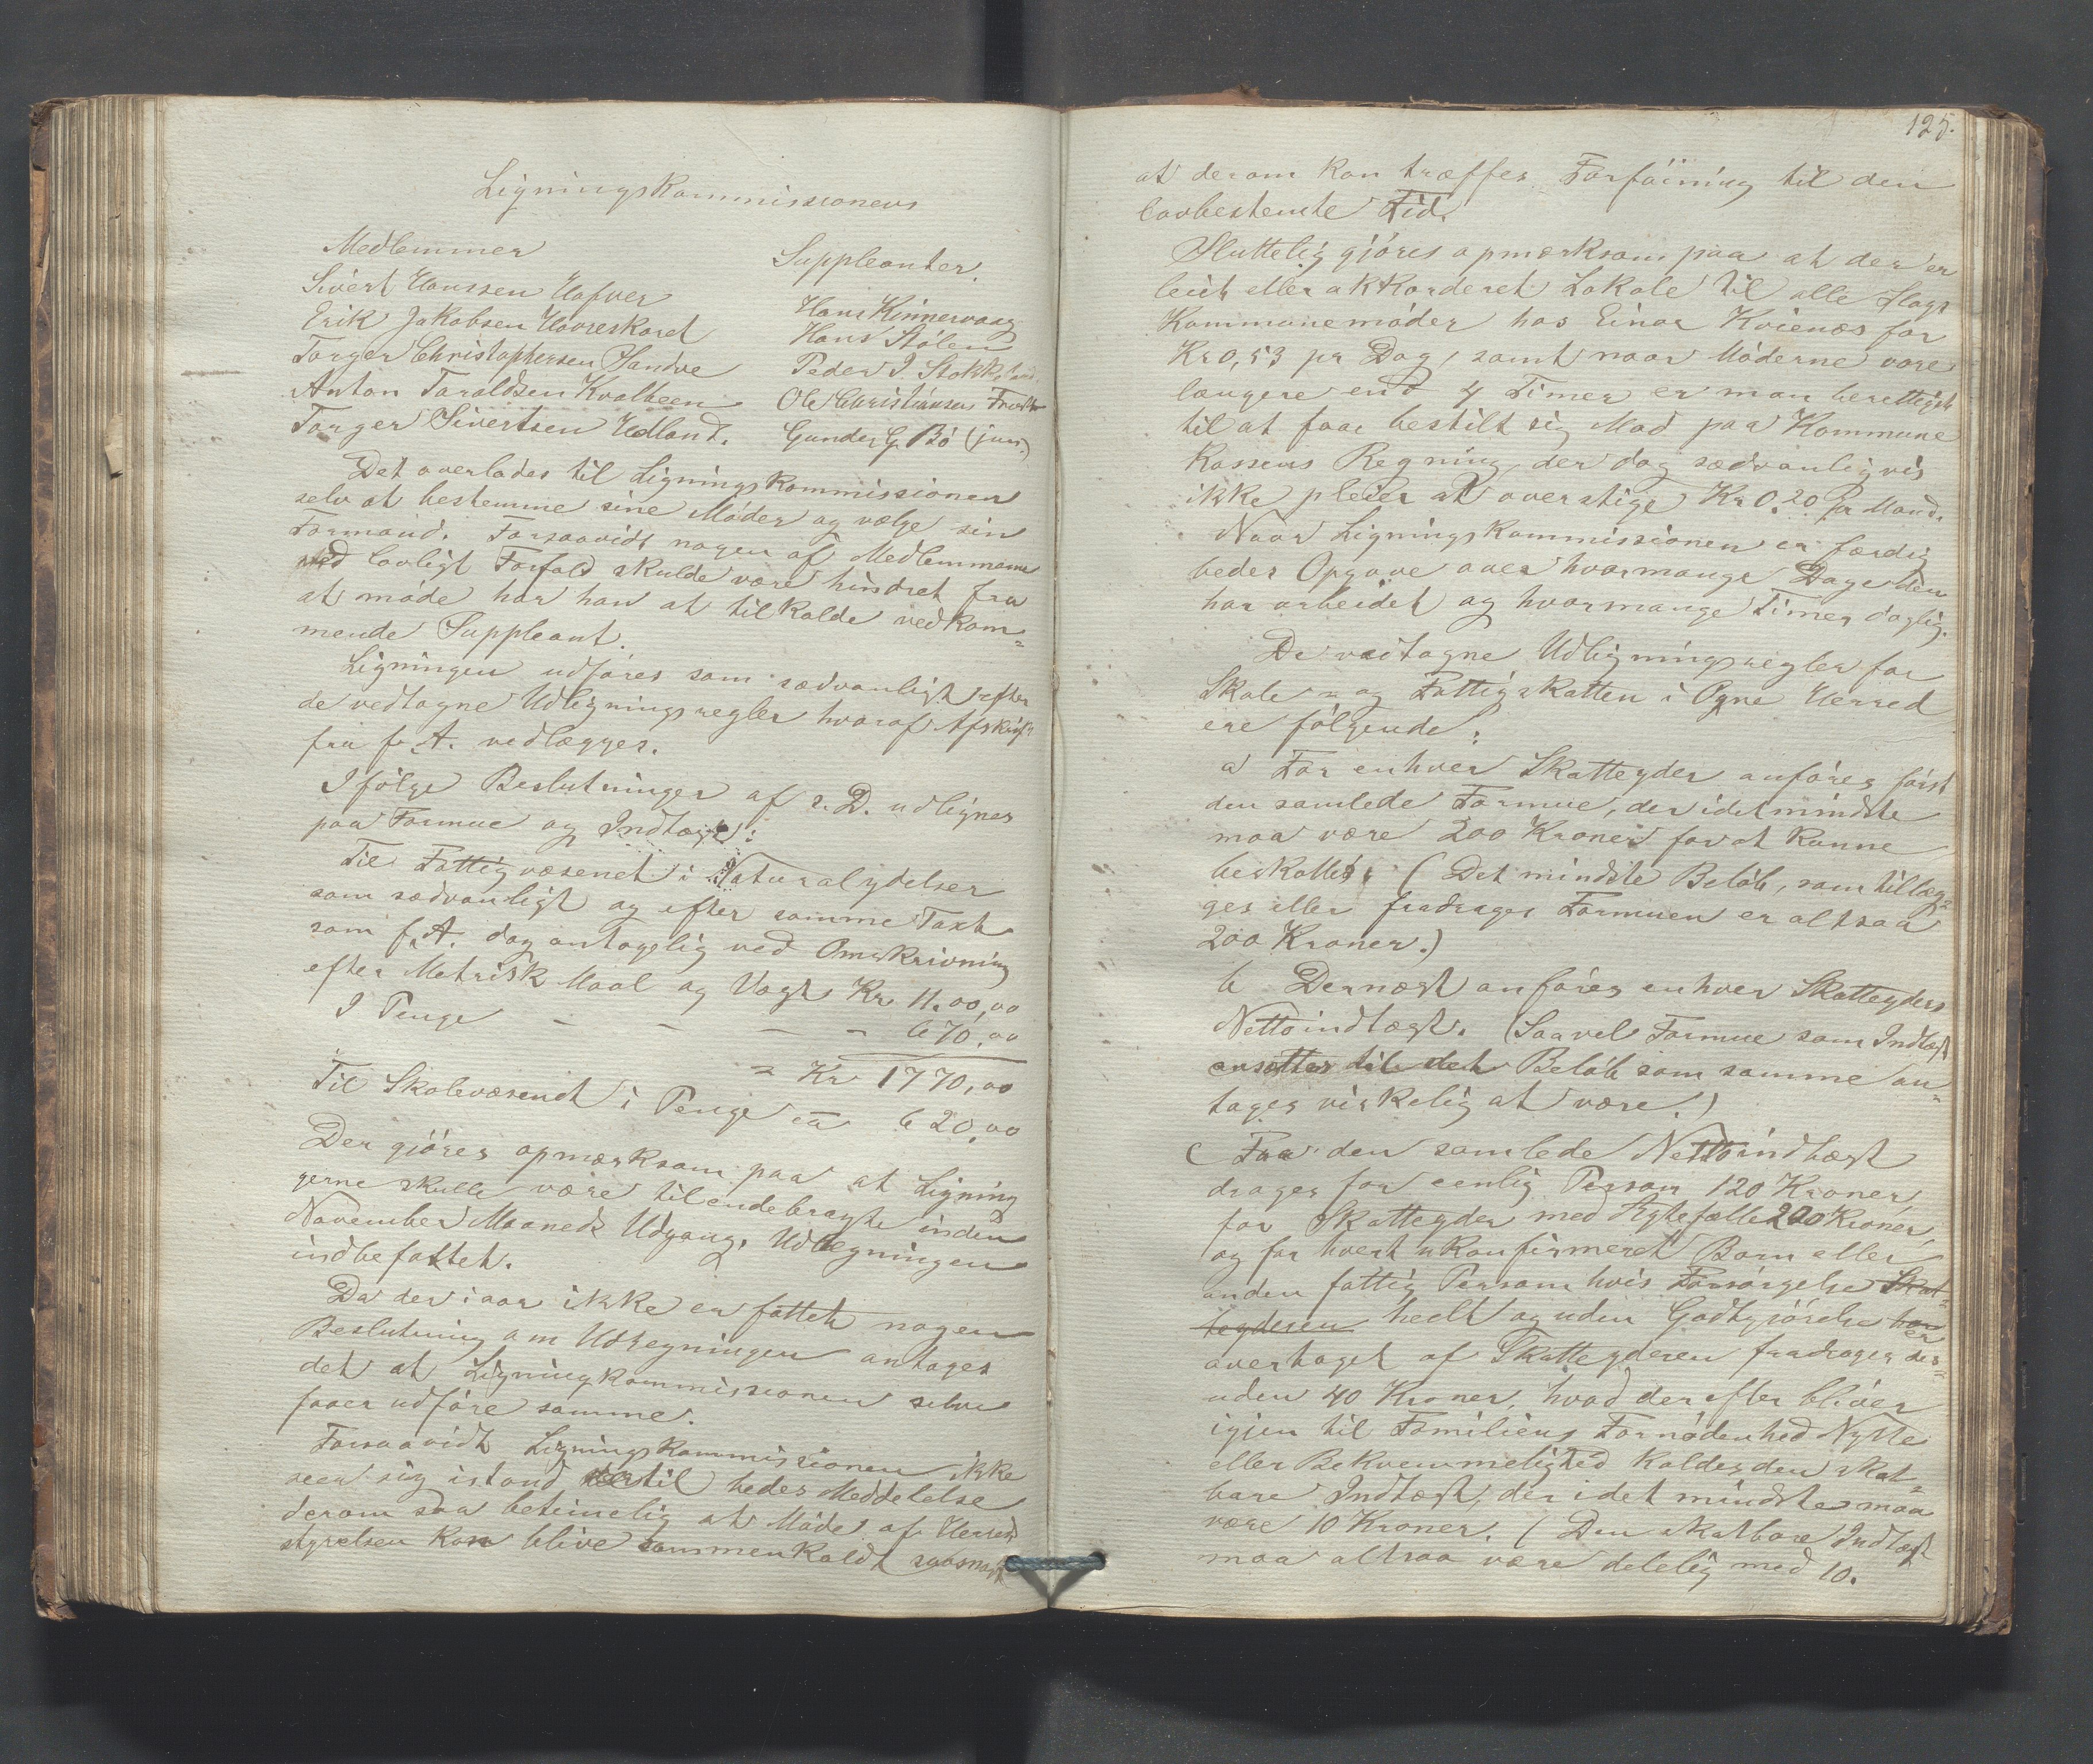 Ligningskommissionens
Medlemmer
Sivert Hanssen Hafver
Erik Jakobsen Hovreskord
Torger Christophersen Sandve
Anton Taraldsen Kvalbeen
Torger Sivertsen Udland.
Suppleanter.
Hans Kinnervaag
Hans Stölen
Peder I Stokkeland
Ole Christiansen
Gunder G. Bö (jun.)
Det overlades til Ligningskommissionen
selv at bestemme sine Möder og vælge sin
Formand. Forsaavidt nogen af Medlemmerne
ved lovligt Forfald skulde være hindret fra
at möde har han at tilkalde vedkom=
mende Suppleant.
Ligningen udföres som sædvanligt efter
de vedtagne Udligningsregler hvoraf Afskrift
fra f. A. vedlægges.
Ifölge Beslutninger af s. D. udlignes
paa Formue og Indtægt:
Til Fattigvæsenet i Naturalydelser
som sædvanligt og efter samme Taxt
som f. A. dog antagelig ved Omskrivning
efter Metrisk Maal og Vægt Kr 11.00,00
I Penge - - - - 670,00
= Kr 1770,00
Til Skolevæsenet i Penge ca 620,00
Der gjöres opmærksom paa at Ligning
gerne skulle være tilendebragte inden
November Maaneds Udgang, Udregningen
indbefattet.
Da der i aar ikke er fattet nogen
Beslutning om Udregningen antages
det at Ligningkommissionen selv
faaer udföre samme.
Forsaavidt Ligningskommissionen ikke
seer sig istand dertil bedes Meddelelse
derom saa betimelig at Möde af Herreds
styrelsen kan blive sammenkaldt saasnart
125.
at derom kan træffes Forföining til den
lovbestemte Tid.
Sluttelig gjöres opmærksom paa at der er
leiet eller akkorderet Lokale til alle Slags
Kommunemöder hos Einar Kvienæs for
Kr 0,53 pr Dag, samt naar Möderne vare
længere end 4 Timer er man berettiget
til at faae bestilt sig Mad paa Kommune
Kassens Regning, der dog sædvanligvis
ikke pleier at overstige Kr 0.20 pr Mand.
Naar Ligningskommissionen er færdig
bedes Opgave over hvormange Dage den
har arbeidet og hvormange Timer daglig.
De vedtagne Udligningsregler for
Skole= og Fattigskatten i Ogne Herred
ere fölgende:
a For enhver Skatteyder anföres först
den samlede Formue, der idetmindste
maa være 200 Kroner for at kunne
beskattes. (Det mindste Belöb, som tillæg=
ges eller fradrages Formuen er altsaa
200 Kroner.)
b Dernæst anföres enhver Skatteyders
Nettoindtægt. (Saavel Formue som Indtægt
ansættes til det Belöb som samme an=
tages virkelig at være.)
c Fra den samlede Nettoindtægt
drages for eenlig Person 120 Kroner,
for Skatteyder med Ægtefælle 220 Kroner,
og for hvert ukonfirmeret Barn eller
anden fattig Person hvis Forsörgelse Skat=
teyderen heelt og uden Godtgjörelse har er
overtaget af Skatteyderen fradrages des=
uden 40 Kroner, hvad derefter bliver
igjen til Familiens Fornödenhed Nytte
eller Bekvemmelighed kaldes den skat=
bare Indtægt, der i det mindste maa
være 10 Kroner. (Den skatbare Indtægt
maa altsaa være delelig med 10.